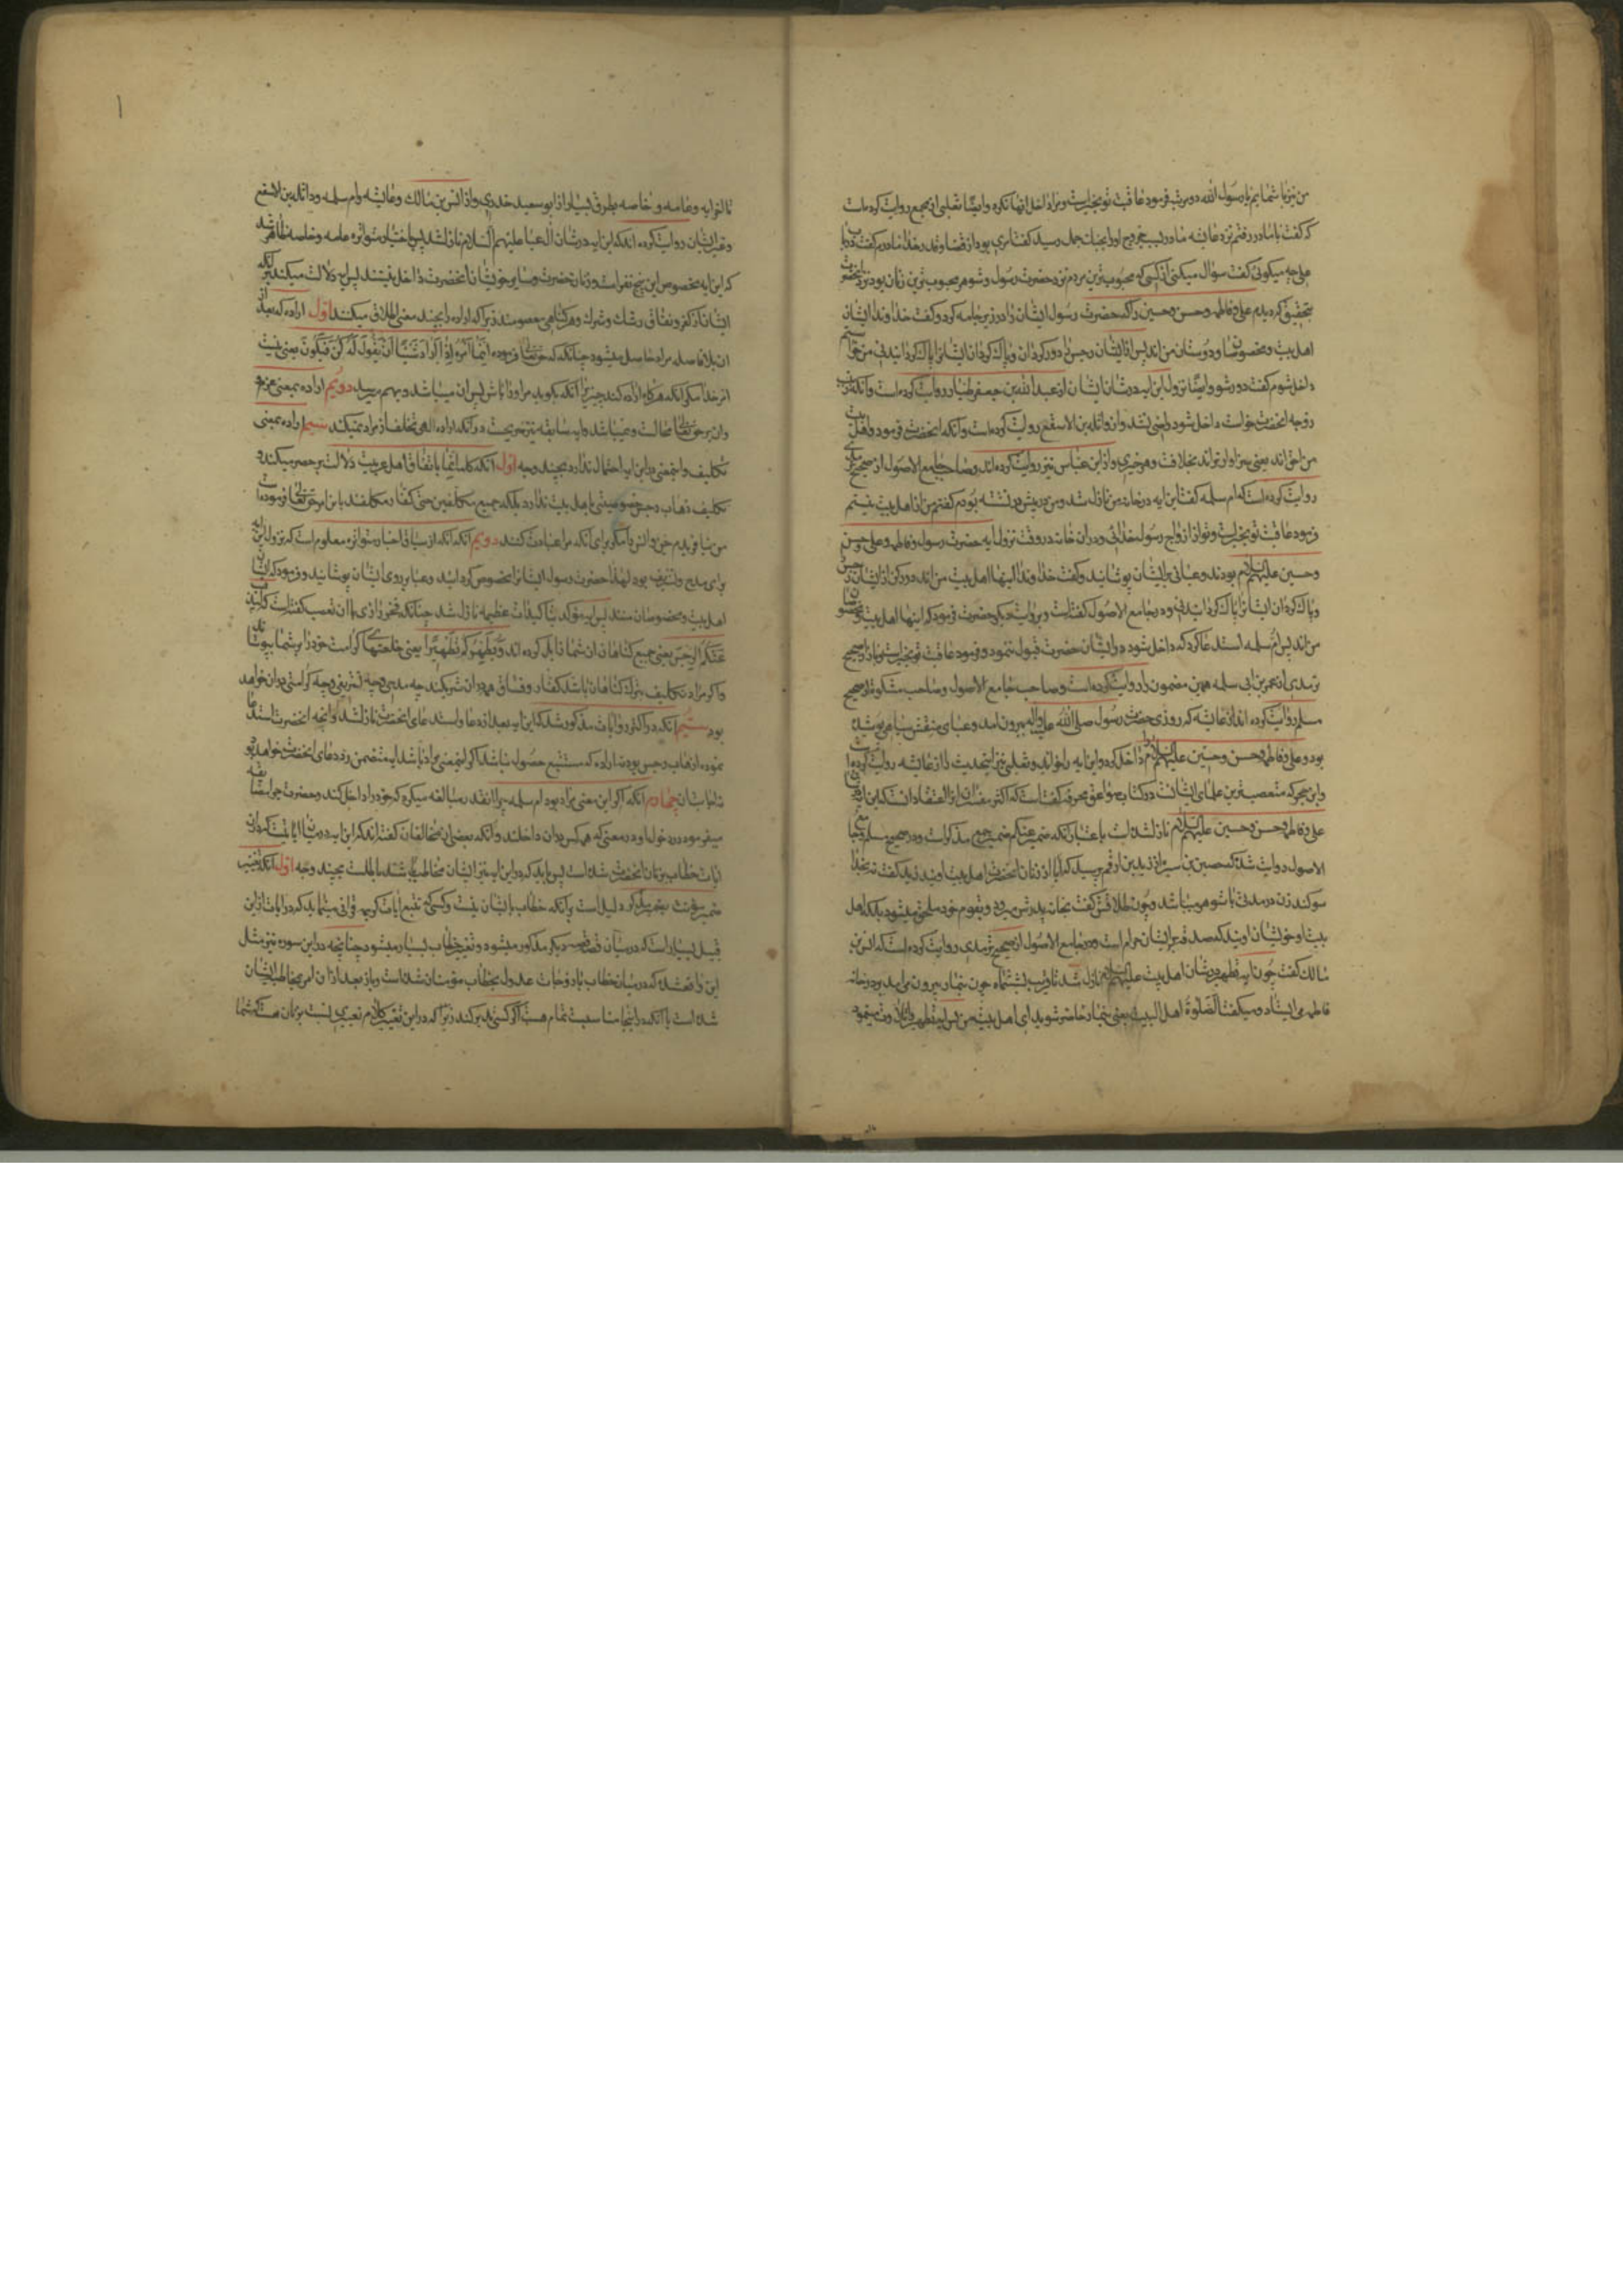 من نیز با شمایم یا رسول الله دو مرتبه فرمود عاقبت تو بخیر است و مرا داخل انها نکرد و ایضا ثعلبی از مجمع روایت کرده است
که گفت با مادر رفتم نزد عایشه مادر سبب خروج او را بجنك جمل پرسید گفت امری بود از قضا و قدر خدا مادرم گفت در باب
علی چه میکوئی گفت سؤال میکنی از کسی که محبوب ترین مردم نزد حضرت رسول و شوهر محبوب ترین زنان بود نزد انحضرت
بتحقیق که دیدم علی و فاطمه و حسن و حسین را که حضرت رسول ایشان را در زیر جامه کرد و گفت خداوندا ایشان
اهل بیت و مخصوصان و دوستان من اند پس از ایشان رجس را دور کردان و پاك کردان ایشانرا پاك کردانیدنی من خواستم
داخل شوم گفت دور شو و ایضا نزول این ایه در شان ایشان از عبد الله بن جعفر طیار روایت کرده است و انکه زینب
زوجه انحضرت خواست داخل شود راضی نشد و از واثله بن الاسقع روایت کرده است و انکه انحضرت فرمود و اهل بیت
من احق اند یعنی سزاوار ترند بخلافت و هر خیری و از ابن عباس نیز روایت کرده اند و صاحب جامع الاصول از صحیح ترمذی
روایت کرده است که ام سلمه گفت این ایه در خانه من نازل شد و من در پیش در نشسته بودم گفتم من از اهل بیت نیستم
فرمود عاقبت تو بخیر است و تو از ازواج رسول خدائی و در ان خانه در وقت نزول ایه حضرت رسول و فاطمه و علی و حسن
و حسین علیهم السلام بودند و عبائی بر ایشان پوشانید و گفت خداوندا اینها اهل بیت من اند دور کن از ایشان رجس
و پاك کردان ایشانرا پاك کردانیدنی و در جامع الاصول گفته است و بروایت دیکر حضرت فرمود که اینها اهل بیت و مخصوصان
من اند پس ام سلمه استدعا کرد که داخل شود در ایشان حضرت قبول ننمود و فرمود عاقبت تو بخیر است و باز در صحیح
ترمذی از عمر بن ابی سلمه همین مضمون را روایت کرده است و صاحب جامع الاصول و صاحب مشکوة از صحیح
مسلم روایت کرده اند از عایشه که روزی حضرت رسول صلی الله علیه و اله بیرون امد و عبای منقش سیاهی پوشیده
بود و علی و فاطمه و حسن و حسین علیهم السلام را داخل کرد و این ایه را خواند و ثعلبی نیز این حدیث را از عایشه روایت کرده است
و ابن حجر که متعصب ترین علمای ایشانست در کتاب صواعق محرقه گفته است که اکثر مفسران را اعتقاد انست که این ایه در شان
علی و فاطمه و حسن و حسین علیهم السلام نازل شده است باعتبار انکه ضمیر عنکم ضمیر جمع مذکر است و در صحیح مسلم و جامع
الاصول روایت شده که حصین بن سبره از زید بن ارقم پرسید که ایا از زنان انحضرت اهل بیت اویند زید گفت نه بخدا
سوکند زن در مدتی با شوهر میباشد و چون طلاقش گفت بخانه پدرش میرود و بقوم خود ملحق میشود بلکه اهل
بیت او خویشان اویند که صدقه بر ایشان حرام است و در جامع الاصول از صحیح ترمذی روایت کرده است که انس بن
مالك گفت چون ایه تطهیر در شان اهل بیت علیهم السلام نازل شد تا قریب بشش ماه چون بنماز بیرون می امد بدر خانه
فاطمه می ایستاد و میکفت الصلوة اهل البیت یعنی بنماز حاضر شوید ای اهل بیت من پس ایه تطهیر را تلاوت مینمود
۱
تا اخر ایه و عامه و خاصه بطرق بسیار از ابو سعید خدری و از انس بن مالك و عایشه و ام سلمه و واثله بن الاسقع
و غیر ایشان روایت کرده اند که این ایه در شان ال عبا علیهم السلام نازل شد پس باخبار متواتره عامه و خاصه ظاهر شد
که این ایه مخصوص این پنج نفر است و زنان حضرت و سایر خویشان انحضرت داخل نیستند پس ایه دلالت میکند بر انکه
ایشان از کفر و نفاق و شك و شرك و هر گناهی معصومند زیرا که اراده را بچند معنی اطلاق میکنند اول اراده که بعد از
ان بلافاصله مراد حاصل میشود چنانکه حق تعالی فرموده انما امره اذا اراد شیئا ان یقول له کن فیکون یعنی نیست
امر خدا مکر انکه هرکاه اراده کند چیزی را انکه بکوید مر او را باش پس ان میباشد و بهم میرسد دویم اراده بمعنی عزم
وان بر حق تعالی محالست و ایه سابقه نیز صریحست در انکه اراده الهی تخلف از مراد نمیکند سیم اراده بمعنی
تکلیف و این معنی در این ایه احتمال ندارد بچند وجه اول انکه کلمه انما باتفاق اهل عربیت دلالت بر حصر میکند و
تکلیف ذهاب رجس خصوصیتی باهل بیت ندارد بلکه جمیع مکلفین حتی کفار مکلفند باین امر حق تعالی فرموده است
من نیافریدم جن و انس را مکر برای انکه مرا عبادت کنند دویم انکه از سیاق اخبار متواتره معلوم است که نزول این ایه
برای مدح و تشریف بود لهذا حضرت رسول ایشانرا مخصوص کردانید و عبا بر روی ایشان پوشانید و فرمود که ایشان
اهل بیت و مخصوصان منند پس ایه مؤکد بتاکیدات عظیمه نازل شد چنانکه فخر رازی با ان تعصب گفته است که لیذهب
عنکم الرجس یعنی جمیع گناهان از شما زایل کرده اند و یطهرکم تطهیرا یعنی خلعتهای کرامت خود را بر شما پوشانند
و اکر مراد تکلیف بترك گناهان باشد کفار و فساق هم در ان شریکند چه مدحی و چه تشریفی و چه کرامتی در ان خواهد
بود سیم انکه در اکثر روایات مذکور شد که این ایه بعد از دعا و استدعای انحضرت نازل شد و انچه انحضرت استدعا
نموده اذهاب رجس بود نه اراده که مستتبع حصول نباشد اکر این معنی مراد باشد ایه متضمن رد دعای انحضرت خواهد بود
نه اجابت ان چهارم انکه اکر این معنی مراد بود ام سلمه چرا انقدر مبالغه میکرد که خود را داخل کند و حضرت چرا مضایقه
میفرمود در دخول او در معنی که هر کس در ان داخلند و انکه بعضی از مخالفان گفته اند که این ایه در میان ایاتیست که در ان
ایات خطاب بزنان انحضرت شده است پس باید که در این ایه نیز ایشان مخاطب باشند باطلست بچند وجه اول انکه تغییر
ضمیر مؤنث بضمیر مذکر دلیل است بر انکه خطاب با ایشان نیست و کسی که تتبع ایات کریمه قرانی مینماید که در ایات از این
قبیل بسیار است که در میان قصه قصه دیکر مذکور میشود و تغییر خطاب بسیار میشود چنانچه در این سوره نیز مثل
این واقع شده که در میان خطاب بازوجات عدول بخطاب مؤمنان شده است و باز بعد از ان امر بمخاطبه ایشان
شده است با انکه در اینجا مناسبت تمام هست اکر کسی تدبر کند زیرا که در این تغییر کلام تعییری نسبت بزنان هست که شما